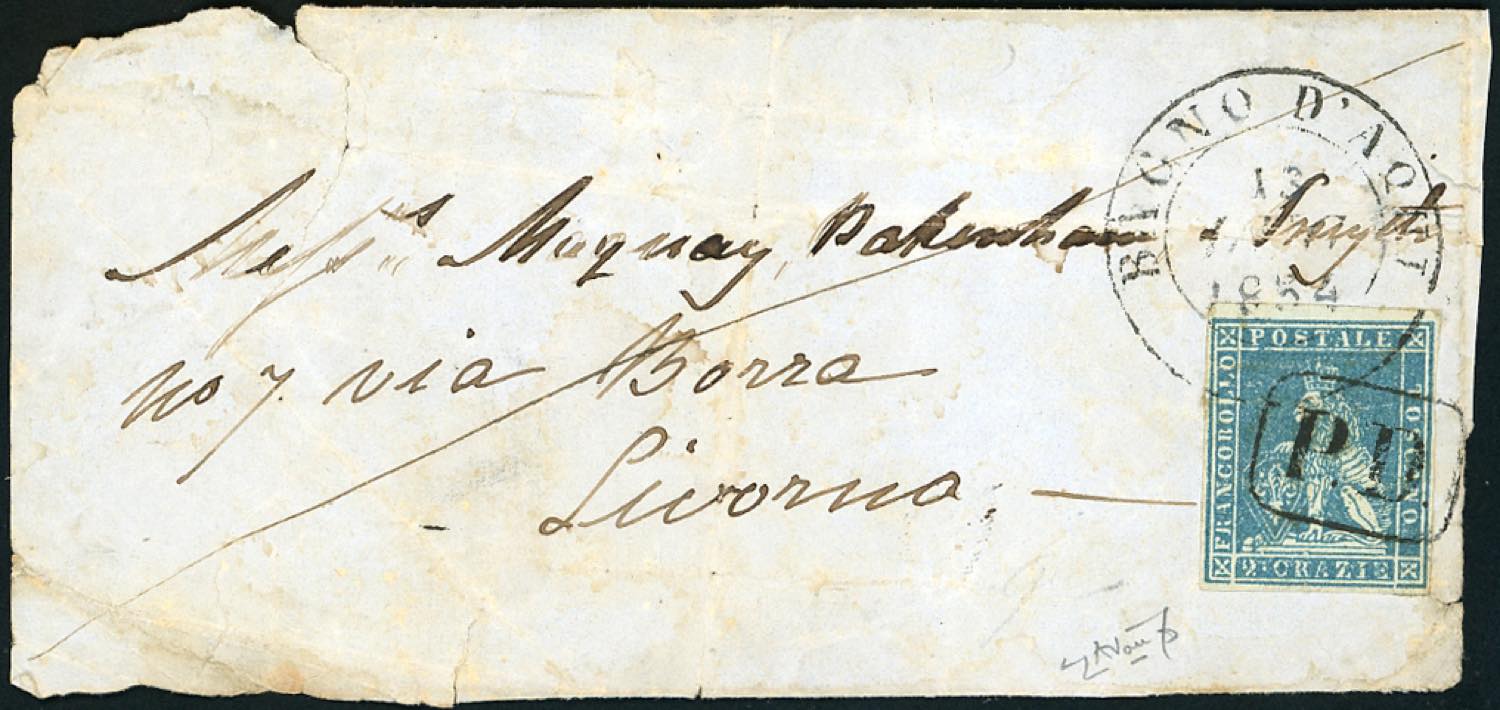 BIGNO D'AQUI
13
1854
Mess.rs Maquay, Pakenham & Smyth
No 7. via Borra
Livorno.
FRANCOBOLLO POSTALE TOSCANO
2 CRAZIE
P.D.